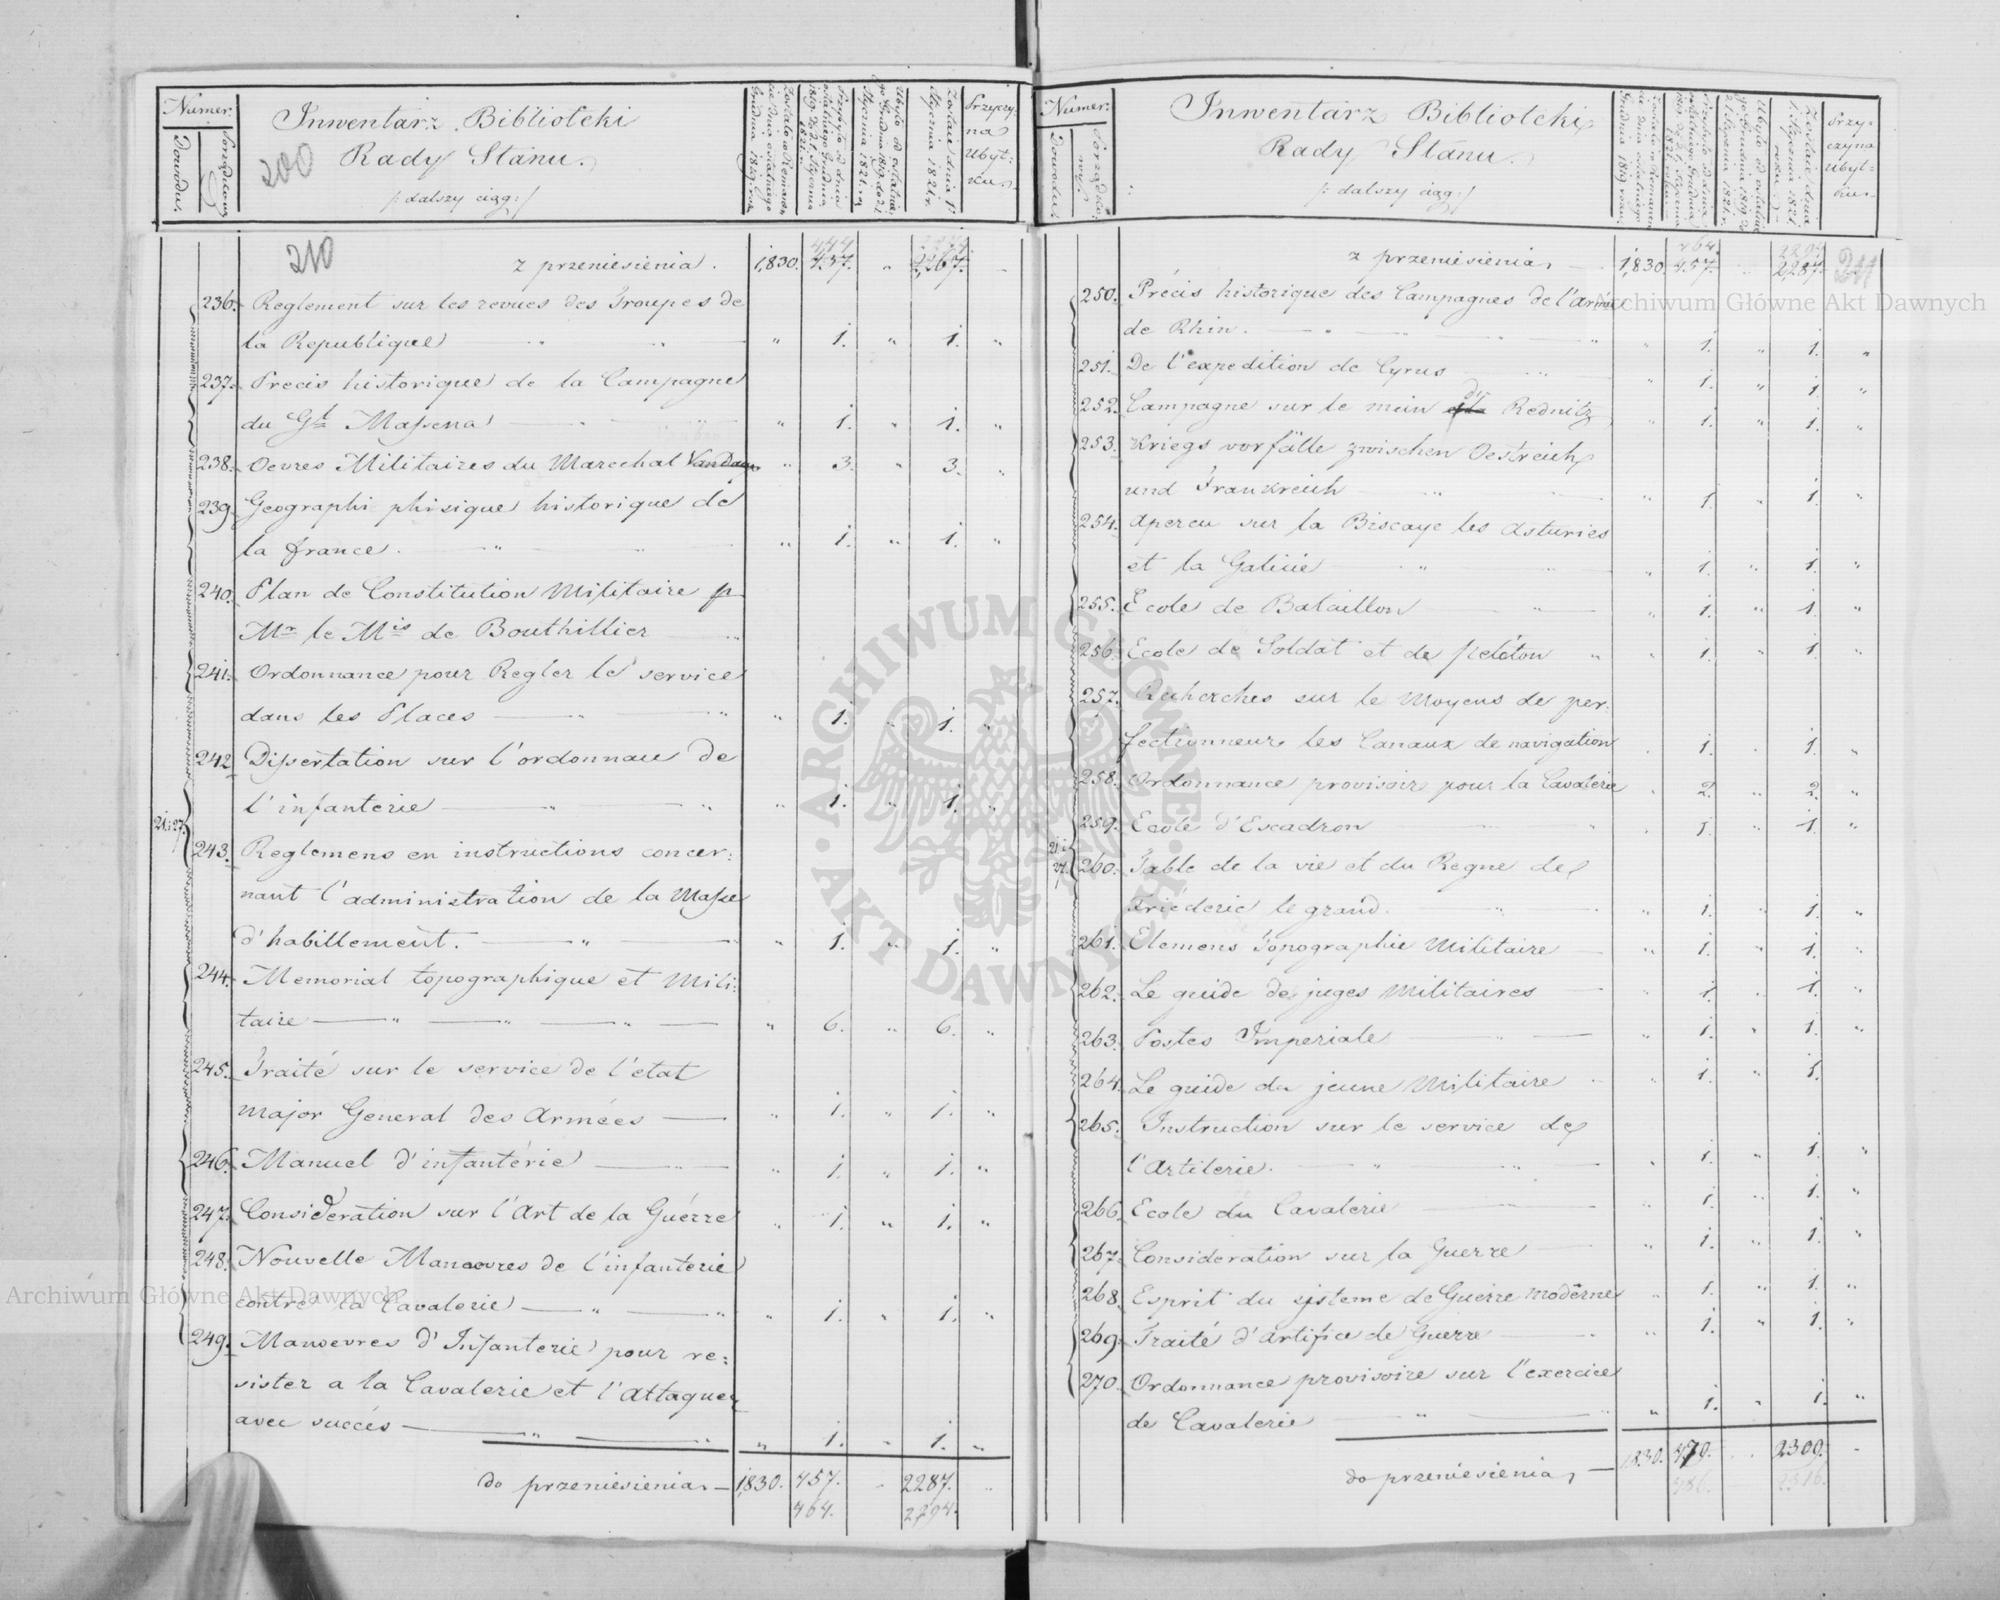 Numer
Dowodu
Porządkowy
Inwentarz Biblioteki
Rady Stanu.
/: dalszy ciąg :/
200
Przyczy-
na
Ubyt-
ku.
210
z przeniesienia. 1,830. 437. " 2,267.
236. Reglement sur les revues des Troupes de
la Republique " 1. " 1. "
237. Precis historique de la Campagne
du Gl Massena " 1. " 1. "
238. Oevres Militaires du Marechal Van Daun " 3. " 3. "
239. Geographi phisique historique de
la france. " 1. " 1. "
240. Plan de Constitution Militaire p
Mr le Mis de Bouthillier
241. Ordonnance pour Regler le service
dans les Places " 1. " 1. "
242 Dissertation sur l'ordonnace de
l'infanterie " 1. " 1. "
21 i 27.
243. Reglemens en instructions concer:
nant l'administration de la Masse
d'habillement. " 1. " 1. "
244. Memorial topographique et Mili:
taire " 6. " 6. "
245. Traité sur le service de l'état
major General des Armées " 1. " 1. "
246. Manuel d'infantérie " 1. " 1. "
247. Consideration sur l'Art de la Guérre " 1. " 1. "
248. Nouvelle Manoevres de l'infanterie
contre la Cavalerie " 1. " 1. "
249. Manoevres d'Infanterie pour re:
sister a la Cavalerie et l'Attaquer
avec succés " 1. " 1. "
do przeniesienia. 1,830. 457. " 2287. "
464. 2294.
Numer
Dowodu
Porządkowy
Inwentarz Biblioteki
Rady Stanu.
/: dalszy ciąg :/
Przy-
czyna
Ubyt-
ku.
z przeniesienia. 1,830. 457. " 2,287. 211
464. 2294.
250. Précis historique des Campagnes de l'armée
de Rhin. " 1. " 1. "
251. De l'expedition de Cyrus " 1. " 1. "
252. Campagne sur le mein Rednitz " 1. " 1. "
253. Kriegs vorfälle zwischen Oestreich
und Frankreich " 1. " 1. "
254. Apercu sur la Biscaye les Asturies
et la Galicie " 1. " 1. "
255. Ecole de Bataillon " 1. " 1. "
256. Ecole de Soldat et de peleton " 1. " 1. "
257. Recherches sur le Moyens de per:
fectionneur les Canaux de navigation " 1. " 1. "
258. Ordonnance provisoir pour la Cavalerie " 2. " 2. "
259. Ecole d'Escadron " 1. " 1. "
21 i
27.
260. Table de la vie et du Regne de
Friederic le grand. " 1. " 1. "
261. Elemens Topographie Militaire " 1. " 1. "
262. Le guide de juges Militaires " 1. " 1. "
263. Postes Imperiale " 1. " 1. "
264. Le guide du jeune Militaire " 1. " 1.
265. Instruction sur le service de
l'Artilerie. " 1. " 1. "
266. Ecole du Cavalerie " 1. " 1. "
267. Consideration sur la Guerre " 1. " 1. "
268. Esprit du sisteme de Guerre moderne " 1. " 1. "
269. Traité d'artifice de Guerre " 1. " 1. "
270. Ordonnance provisoire sur l'exercice
de Cavalerie " 1. " 1. "
do przeniesienia, 1,830. 479. " 2309. "
486. 2316.
Archiwum Główne Akt Dawnych
Archiwum Główne Akt Dawnych
ARCHIWUM GŁÓWNE · AKT DAWNYCH ·